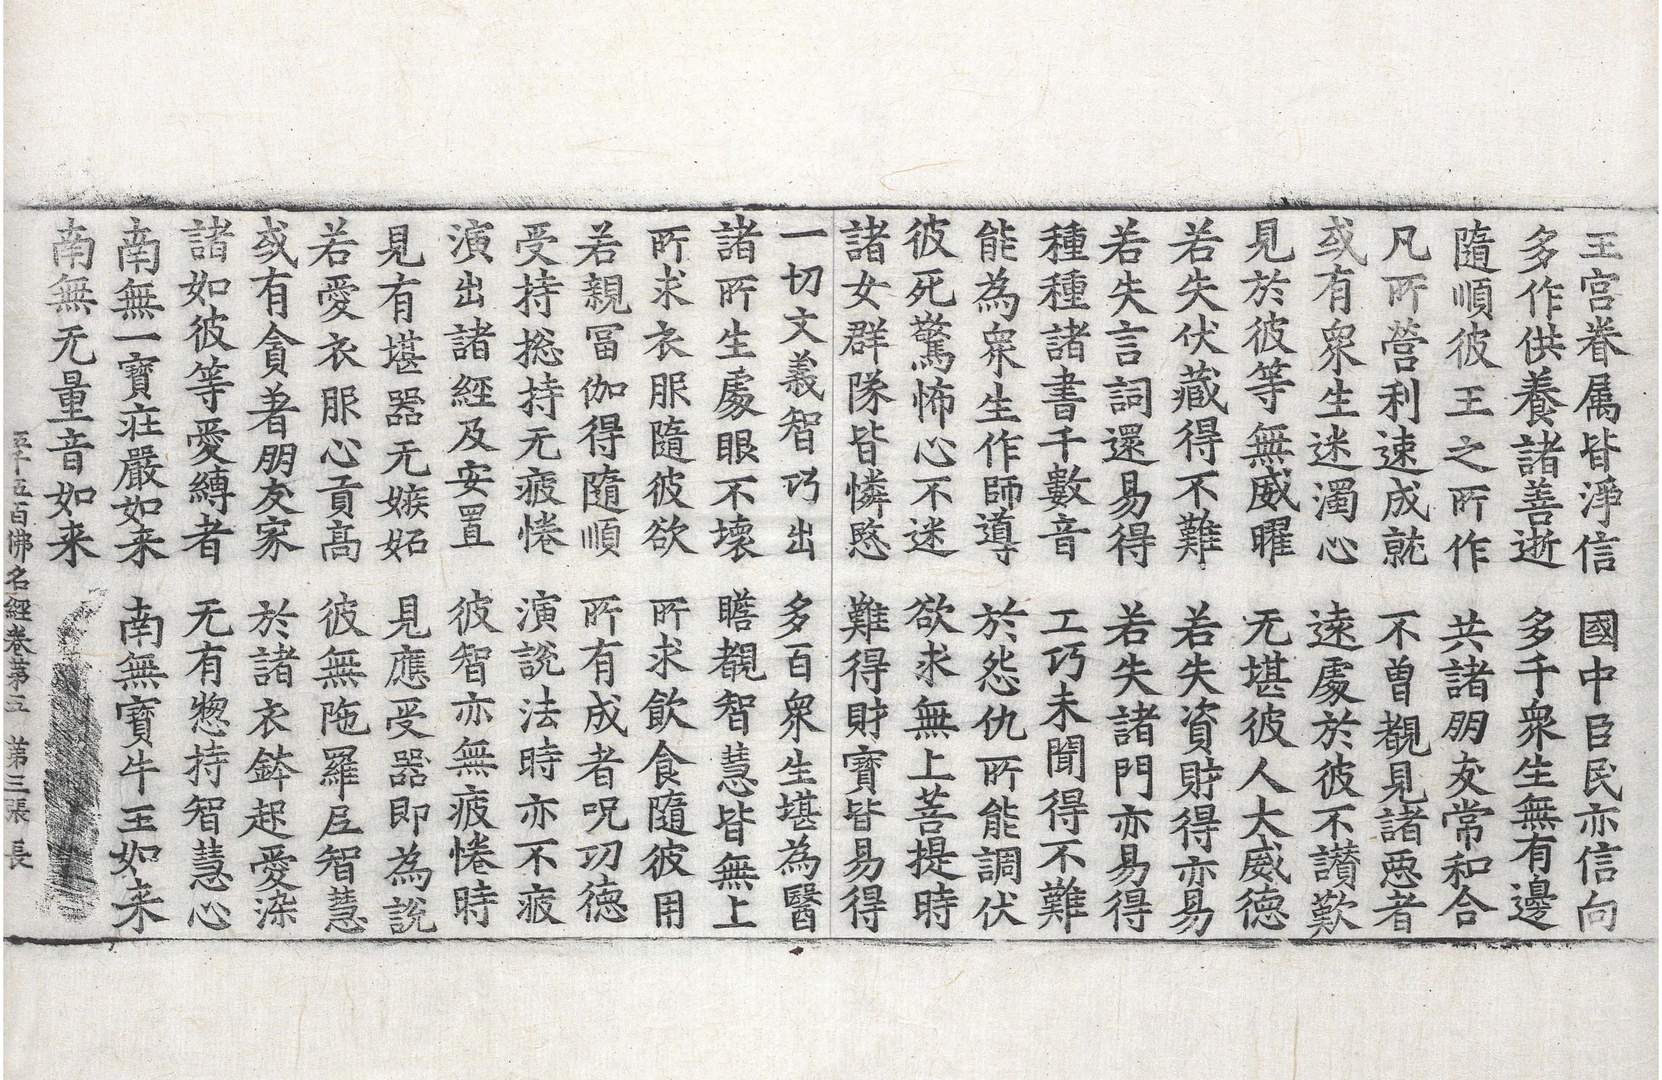 王宮眷属皆淨信　國中臣民亦信向
多作供養諸善逝　多千衆生無有邊
隨順彼王之所作　共諸朋友常和合
凡所營利速成就　不曾覩見諸惡者
或有衆生迷濁心　遠處於彼不讃歎
見於彼等無威曜　无堪彼人大威德
若失伏藏得不難　若失資財得亦易
若失言詞還易得　若失諸門亦易得
種種諸書千數音　工巧未聞得不難
能為衆生作師導　於怨仇所能調伏
彼死驚怖心不迷　欲求無上菩提時
諸女群隊皆憐愍　難得財寶皆易得
一切文義智巧出　多百衆生堪為醫
諸所生處眼不壞　瞻覩智慧皆無上
所求衣服隨彼欲　所求飲食隨彼用
若親冨伽得隨順　所有成者呪功德
受持捴持无疲惓　演說法時亦不疲
演出諸經及安置　彼智亦無疲惓時
見有堪器无嫉妬　見應受器即為說
若愛衣服心貢高　彼無陁羅尼智慧
或有貪著朋友家　於諸衣鉢起愛染
諸如彼等愛縛者　无有惣持智慧心
南無一寶莊嚴如来　南無寶牛王如来
南無无量音如来
五千五百佛名經卷第五　第三張　長